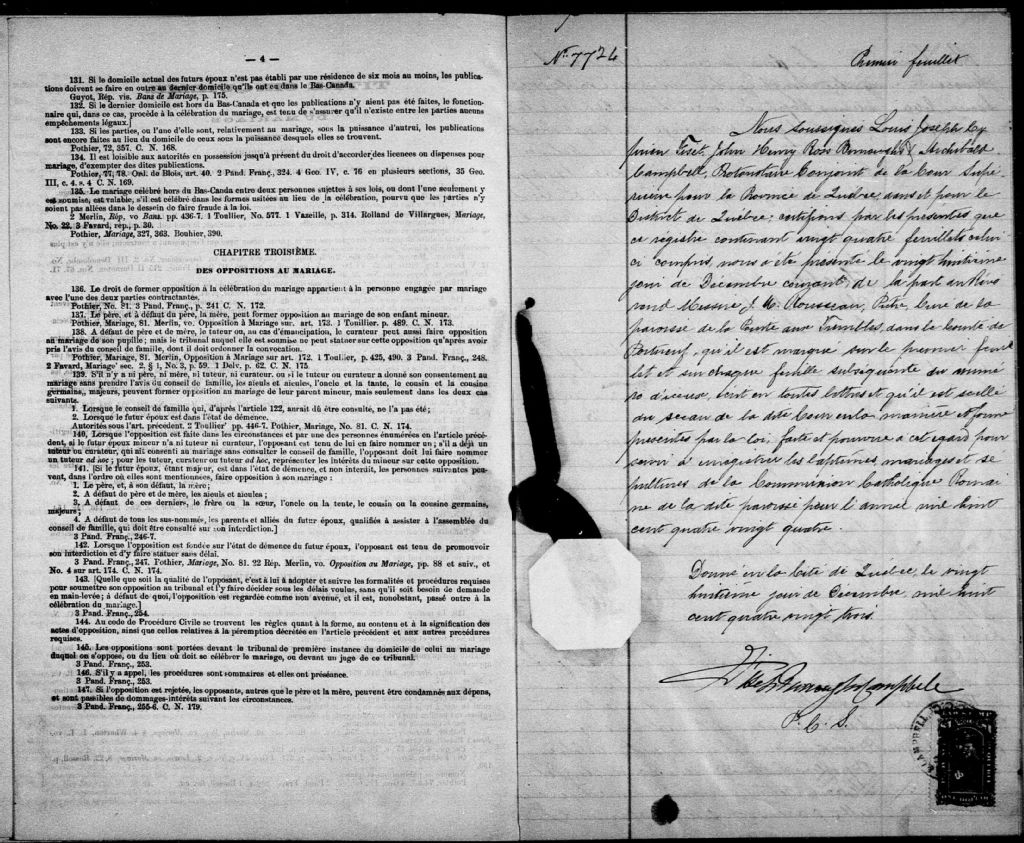 — 4 —
131. Si le domicile actuel des futurs époux n'est pas établi par une résidence de six mois au moins, les publica-
tions doivent se faire en outre au dernier domicile qu'ils ont eu dans le Bas-Canada.
Guyot, Rép. vis. Bans de Mariage, p. 175.
132. Si le dernier domicile est hors du Bas-Canada et que les publications n'y aient pas été faites, le fonction-
naire qui, dans ce cas, procède à la célébration du mariage, est tenu de s'assurer qu'il n'existe entre les parties aucuns
empêchements légaux.]
133. Si les parties, ou l'une d'elle sont, relativement au mariage, sous la puissance d'autrui, les publications
sont encore faites au lieu du domicile de ceux sous la puissance desquels elles se trouvent.
Pothier, 72, 357. C. N. 168.
134. Il est loisible aux autorités en possession jusqu'à présent du droit d'accorder des licences ou dispenses pour
mariage, d'exempter des dites publications.
Pothier, 77, 78. Ord. de Blois, art. 40. 2 Pand. Franç., 324. 4 Geo. IV, c. 76 en plusieurs sections, 35 Geo.
III, c. 4. s. 4 C. N. 169.
135. Le mariage célébré hors du Bas-Canda entre deux personnes sujettes à ses lois, ou dont l'une seulement y
est soumise, est valable, s'il est célébré dans les formes usitées au lieu de la célébration, pourvu que les parties n'y
soient pas allées dans le dessein de faire fraude à la loi.
2 Merlin, Rép. vo Bans. pp. 436-7. 1 Toullier, No. 577. 1 Vazeille, p. 314. Rolland de Villargues, Mariage,
No. 22, 3 Favard, rep., p. 30.
Pothier, Mariage, 327, 363. Bouhier, 390.
CHAPITRE TROISIÈME.
DES OPPOSITIONS AU MARIAGE.
136. Le droit de former opposition à la célébration du mariage appartient à la personne engagée par mariage
avec l'une des deux parties contractantes.
Pothier, No. 81. 3 Pand. Franç., p. 241 C. N. 172.
137. Le père, et à défaut du père, la mère, peut former opposition au mariage de son enfant mineur.
Pothier, Mariage, 81. Merlin, vo. Opposition à Mariage sur. art. 173. 1 Tonillier. p. 489. C. N. 173.
138. A défaut de père et de mère, le tuteur ou, au cas d'émancipation, le curateur peut aussi faire opposition
au mariage de son pupille; mais le tribunal auquel elle est soumise ne peut statuer sur cette opposition qu'après avoir
pris l'avis du conseil de famille, dont il doit ordonner la convocation.
Pothier, Mariage, 81. Merlin, Opposition à Mariage sur art. 172. 1 Toullier, p. 425, 490. 3 Pand. Franç., 248.
2 Favard, Mariage' sec. 2, § 1, No. 3, p. 59. 1 Delv, p. 62. C. N. 175
139. S'il n'y a ni père, ni mère, ni tuteur, ni curateur, ou si le tuteur ou curateur a donné son consentement au
mariage sans prendre l'avis du conseil de famille, les aïeuls et aïeules, l'oncle et la tante, le cousin et la cousine
germains, majeurs, peuvent former opposition au mariage de leur parent mineur, mais seulement dans les deux cas
suivants.
1. Lorsque le conseil de famille qui, d'après l'article 122, aurait dû être consulté, ne l'a pas été;
2. Lorsque le futur époux est dans l'état de démence.
Autorités sous l'art. précédent. 2 Toullier' pp. 446-7. Pothier, Mariage, No. 81. C. N. 174.
140. Lorsque l'opposition est faite dans les circonstances et par une des personnes énumérées en l'article précé-
dent, si le futur époux mineur n'a ni tuteur ni curateur, l'opposant est tenu de lui en faire nommer un; s'il a déjà un
tuteur ou curateur, qui ait consenti au mariage sans consulter le conseil de famille, l'opposant doit lui faire nommer
un tuteur ad hoc; pour les tuteur, curateur ou tuteur ad hoc, représenter les intérêts du mineur sur cette opposition.
141. [Si le futur époux, étant majeur, est dans l'état de démence, et non interdit, les personnes suivantes peu-
vent, dans l'ordre où elles sont mentionnées, faire opposition à son mariage:
1. Le père, et, à son défaut, la mère;
2. A défaut de père et de mère, les aieuls et aieules;
3. A défaut de ces derniers, le frère ou la sœur, l'oncle ou la tante, le cousin ou la cousine germains,
majeurs;
4. A défaut de tous les sus-nommés, les parents et alliés du futur époux, qualifiés à assister à l'assemblée du
conseil de famille, qui doit être consulté sur son interdiction.]
3 Pand. Franç., 246-7.
142. Lorsque l'opposition est fondée sur l'état de démence du futur époux, l'opposant est tenu de promouvoir
son interdiction et d'y faire statuer sans délai.
3 Pand. Franç., 247. Pothier, Mariage, No. 81. 22 Rép. Merlin, vo. Opposition au Mariage, pp. 88 et suiv., et
No. 4 sur art. 174. C. N. 174.
143. [Quelle que soit la qualité de l'opposant, c'est à lui à adopter et suivre les formalités et procédures requises
pour soumettre son opposition au tribunal et l'y faire décider sous les délais voulus, sans qu'il soit besoin de demande
en main-levée; à défaut de quoi, l'opposition est regardée comme non avenue, et il est, nonobstant, passé outre à la
célébration du mariage.]
3 Pand. Franç., 254.
144. Au code de Procédure Civile se trouvent les règles quant à la forme, au contenu et à la signification des
actes d'opposition, ainsi que celles relatives à la péremption décrétées en l'article précédent et aux autres procédures
requises.
145. Les oppositions sont portées devant le tribunal de première instance du domicile de celui au mariage
duquel on s'oppose, ou du lieu où doit se célébrer le mariage, ou devant un juge de ce tribunal.
3 Pand. Franç., 253.
146. S'il y a appel, les procédures sont sommaires et elles ont préséance.
3 Pand. Franç., 253.
147. Si l'opposition est rejetée, les opposants, autres que le père et la mère, peuvent être condamnés aux dépens,
et sont passibles de dommages-intérêts suivant les circonstances.
3 Pand. Franç., 255-6. C. N. 179.
No. 7724
Premier feuillet
Nous soussignés Louis Joseph Cy
prien Fiset, John Henry Ross Burroughs & Archibald
Campbell, Protonotaire Conjoint de la Cour Supé
rieure pour la Province de Québec, dans et pour le
District de Québec: certifions par les présentes que
ce registre contenant vingt quatre feuillets celui
ci compris, nous a été présenté le vingt huitième
jour de Décembre courant de la part du Révé
rend Messire J. Rousseau, Prêtre, Curé de la
paroisse de la Pointe aux Trembles, dans le Comté de
Portneuf, qu'il est marqué sur le premier feuil
let et sur chaque feuille subséquente du numé
ro d'iceux, écrit en toutes lettres et qu'il est scellé
du sceau de la dite Cour en la manière et forme
prescrites par la loi, faite et pourvue à cet égard pour
servir à enregistrer les baptêmes, mariages et sé
pultures de la Communion Catholique Romai
ne de la dite paroisse pour l'année mil huit
cent quatre vingt quatre.
Donné en la Cité de Québec, le vingt
huitième jour de Décembre mil huit
cent quatre vingt trois.
Fiset Burroughs Campbell
P. C. S.
CAMPBELL